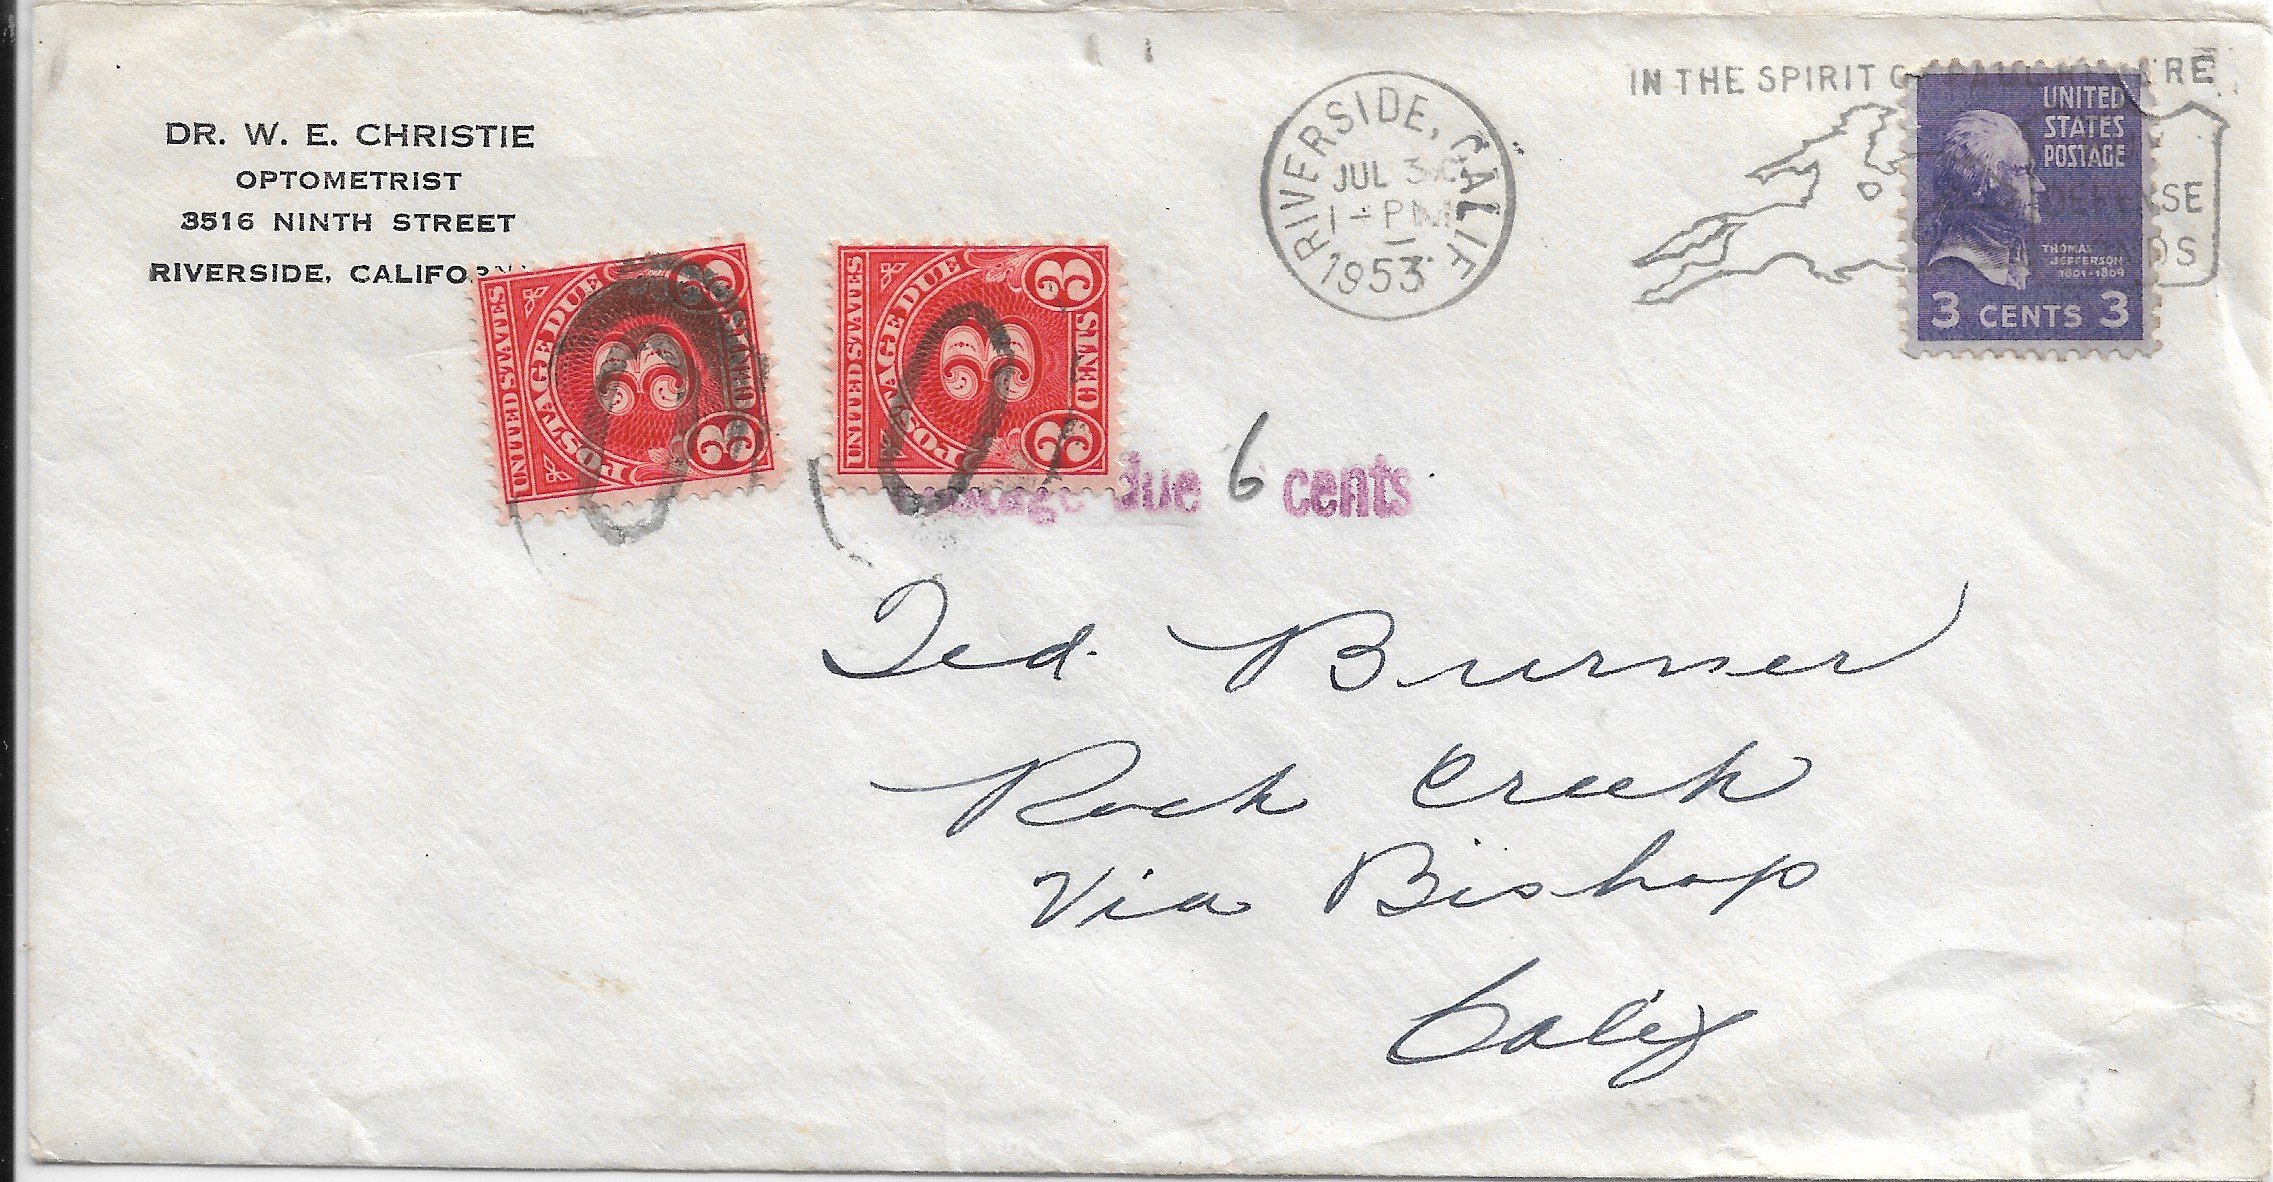 DR. W. E. CHRISTIE
OPTOMETRIST
3516 NINTH STREET
RIVERSIDE,
RIVERSIDE, CALIF
JUL 30
1 - PM
1953
IN THE SPIRIT
UNITED
STATES
POSTAGE
THOMAS
JEFFERSON
1801-1809
3 CENTS 3
DEFENSE
UNITED STATES
POSTAGE DUE
3
3
CENTS
3
UNITED STATES
POSTAGE DUE
3
3
CENTS
3
Postage due 6 cents
Ted Burner
Rock Creek
Via Bishop
Calif